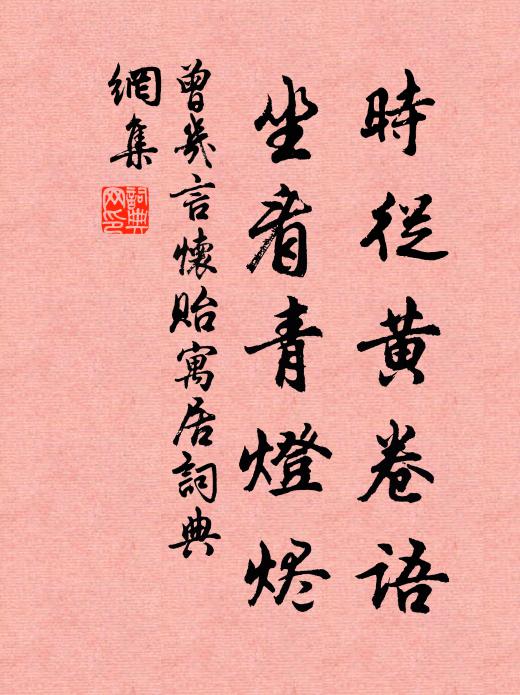 時從黄卷語
坐看青燈烬
曾幾言懷貽寓居詞典
網集
詞典網印